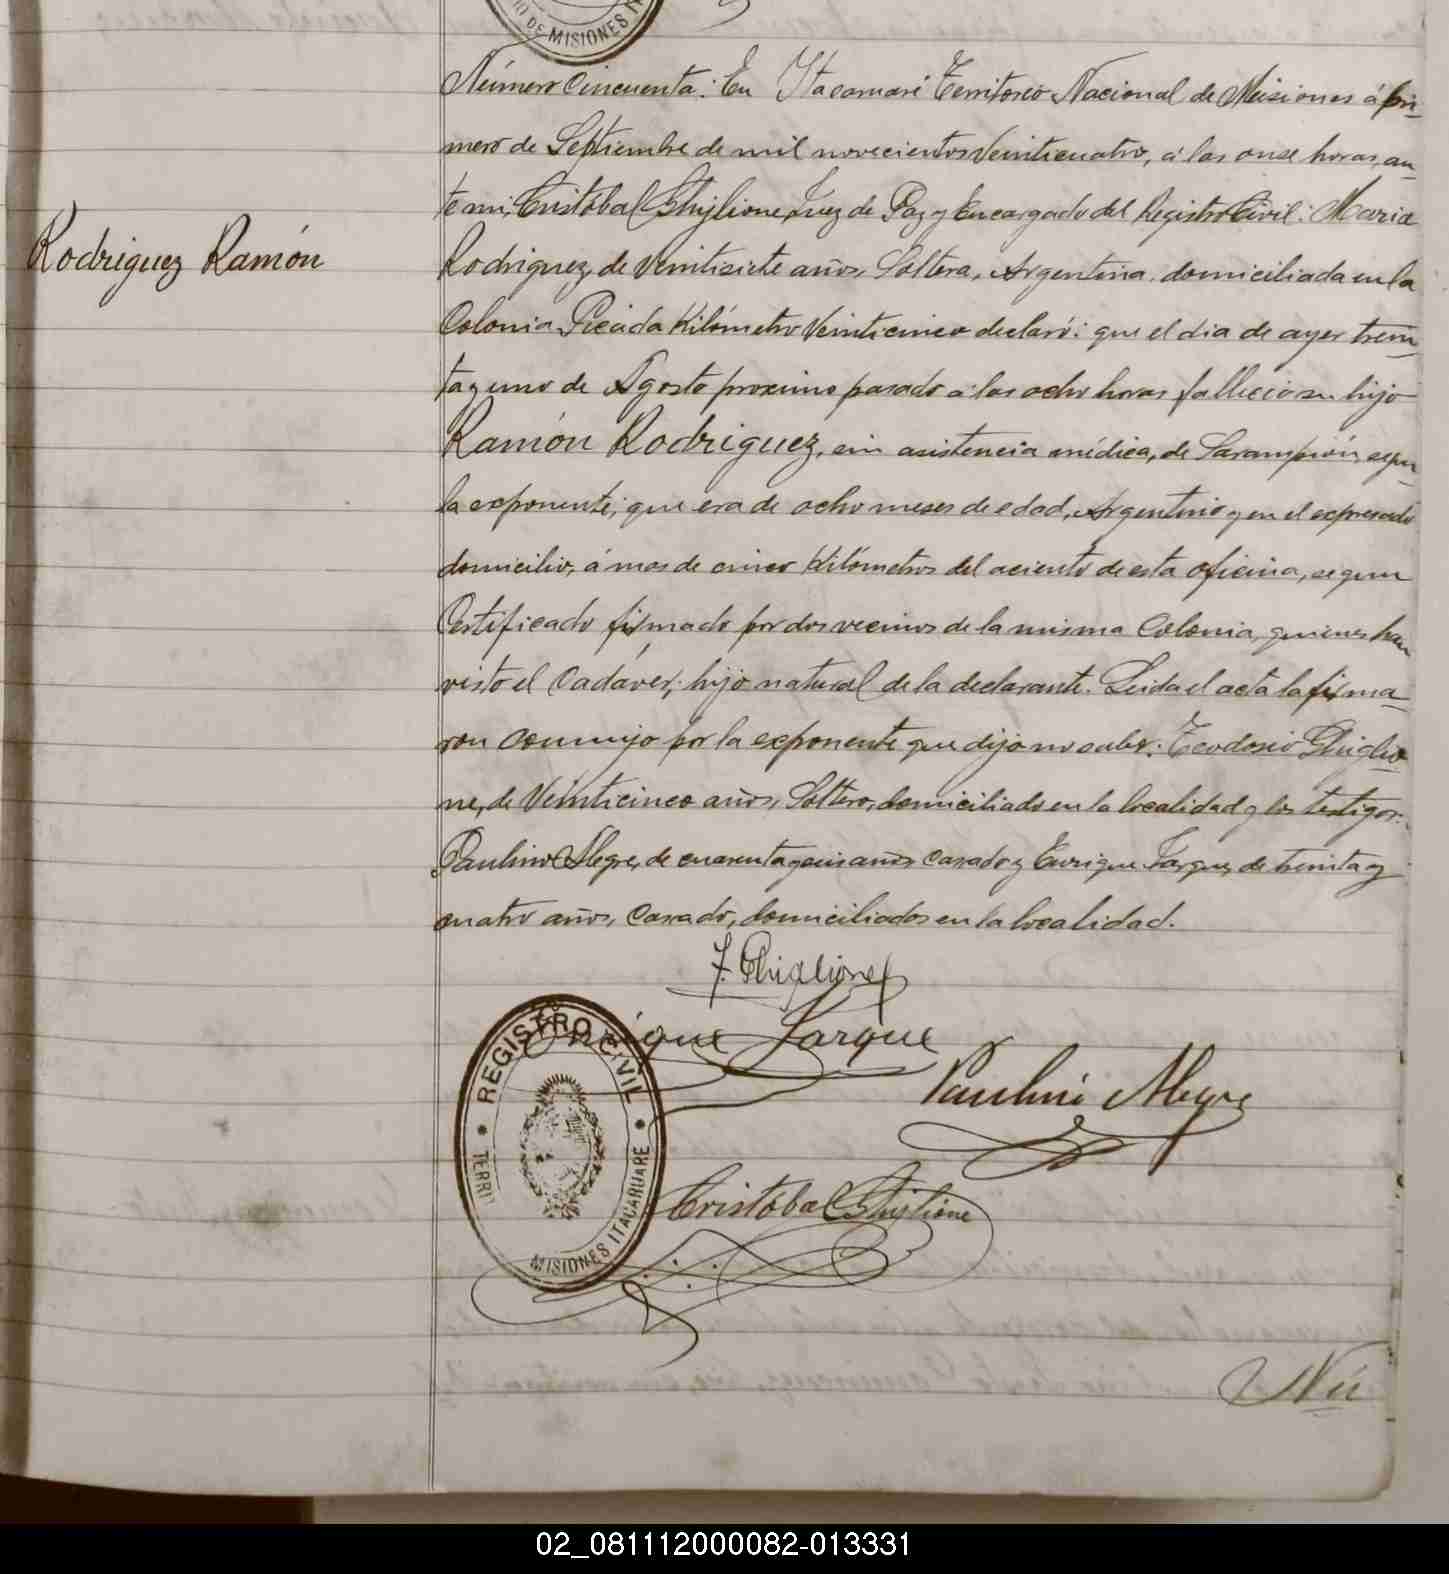 DE MISIONES
Número Cincuenta: En Itacaruaré Territorio Nacional de Misiones á pri-
mero de Septiembre de mil novecientos Veinticuatro, á las onse horas, an-
te mi, Cristóbal Ghiglione, Juez de Paz y Encargado del Registro Civil: Maria
Rodriguez Ramón
Rodriguez, de Veintisiete años, Soltera, Argentina, domiciliada en la
Colonia Picada Kilómetro Veinticinco declaró: que el dia de ayer trein-
ta y uno de Agosto proximo pasado a las ocho horas fallecio su hijo
Ramón Rodriguez, sin asistencia médica, de Sarampión, segun
la exponente; que era de ocho meses de edad, Argentino y en el expresado
domicilio, á mas de cinco Kilómetros del aciento de esta oficina, segun
Certificado firmado por dos vecinos de la misma Colonia, quienes han
visto el Cadáver; hijo natural de la declarante. Leida el acta la firma-
ron conmigo por la exponente que dijo no saber: Teodosio Ghiglio-
ne, de Veinticinco años, Soltero, domiciliado en la localidad y los testigos:
Paulino Alegre, de cuarenta y seis años Casado y Enrique Jarque, de treinta y
cuatro años, Casado, domiciliados en la localidad.
T. Ghiglione
Enrique Jarque
Paulino Alegre
REGISTRO CIVIL
TERRI
MISIONES ITACARUARE
Cristóbal Ghiglione
Nú
02_081112000082-013331